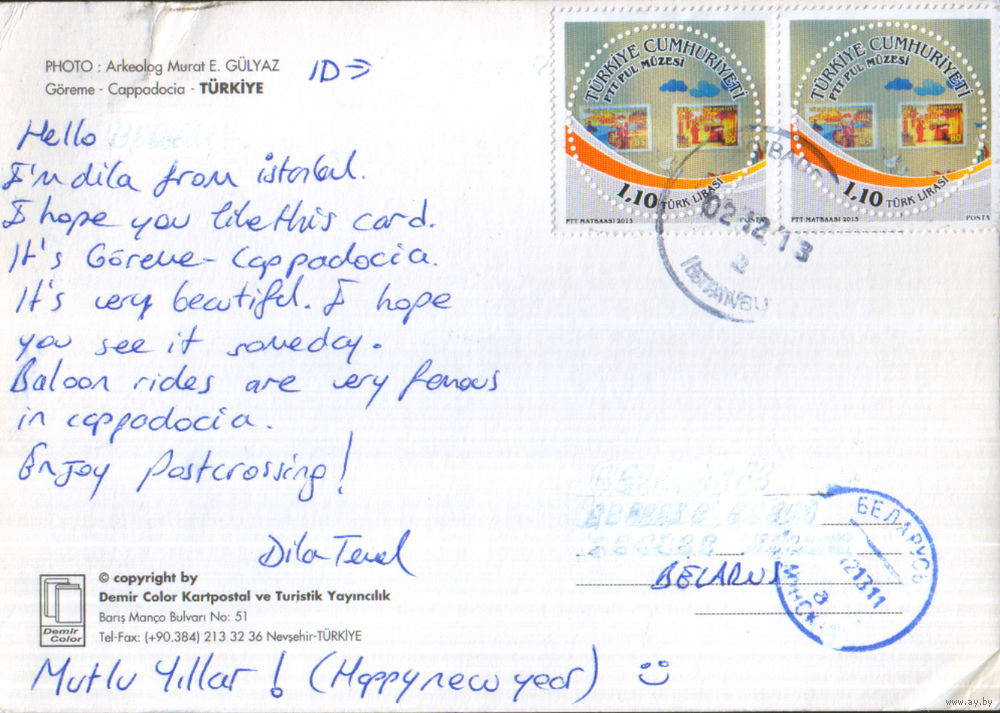 PHOTO : Arkeolog Murat E. GÜLYAZ
Göreme - Cappadocia - TÜRKİYE
ID⇒
TÜRKİYE CUMHURİYETİ
PTT PUL MÜZESİ
1.10 TÜRK LİRASI
PTT MATBAASI 2013
TÜRKİYE CUMHURİYETİ
PTT PUL MÜZESİ
1.10 TÜRK LİRASI
PTT MATBAASI 2013 POSTA
02.12.13
İSTANBUL
Hello
I'm dila from istanbul.
I hope you like this card.
It's Göreme-Cappadocia.
It's very beautiful. I hope
you see it someday.
Baloon rides are very famous
in cappadocia.
Enjoy Postcrossing!
Dila
BELARUS
БЕЛАРУСЬ
МИНСК
© copyright by
Demir Color Kartpostal ve Turistik Yayıncılık
Barış Manço Bulvarı No: 51
Tel-Fax: (+90.384) 213 32 36 Nevşehir-TÜRKİYE
Demir
Color
Mutlu Yıllar! (Happy new year) :)
www.ay.by